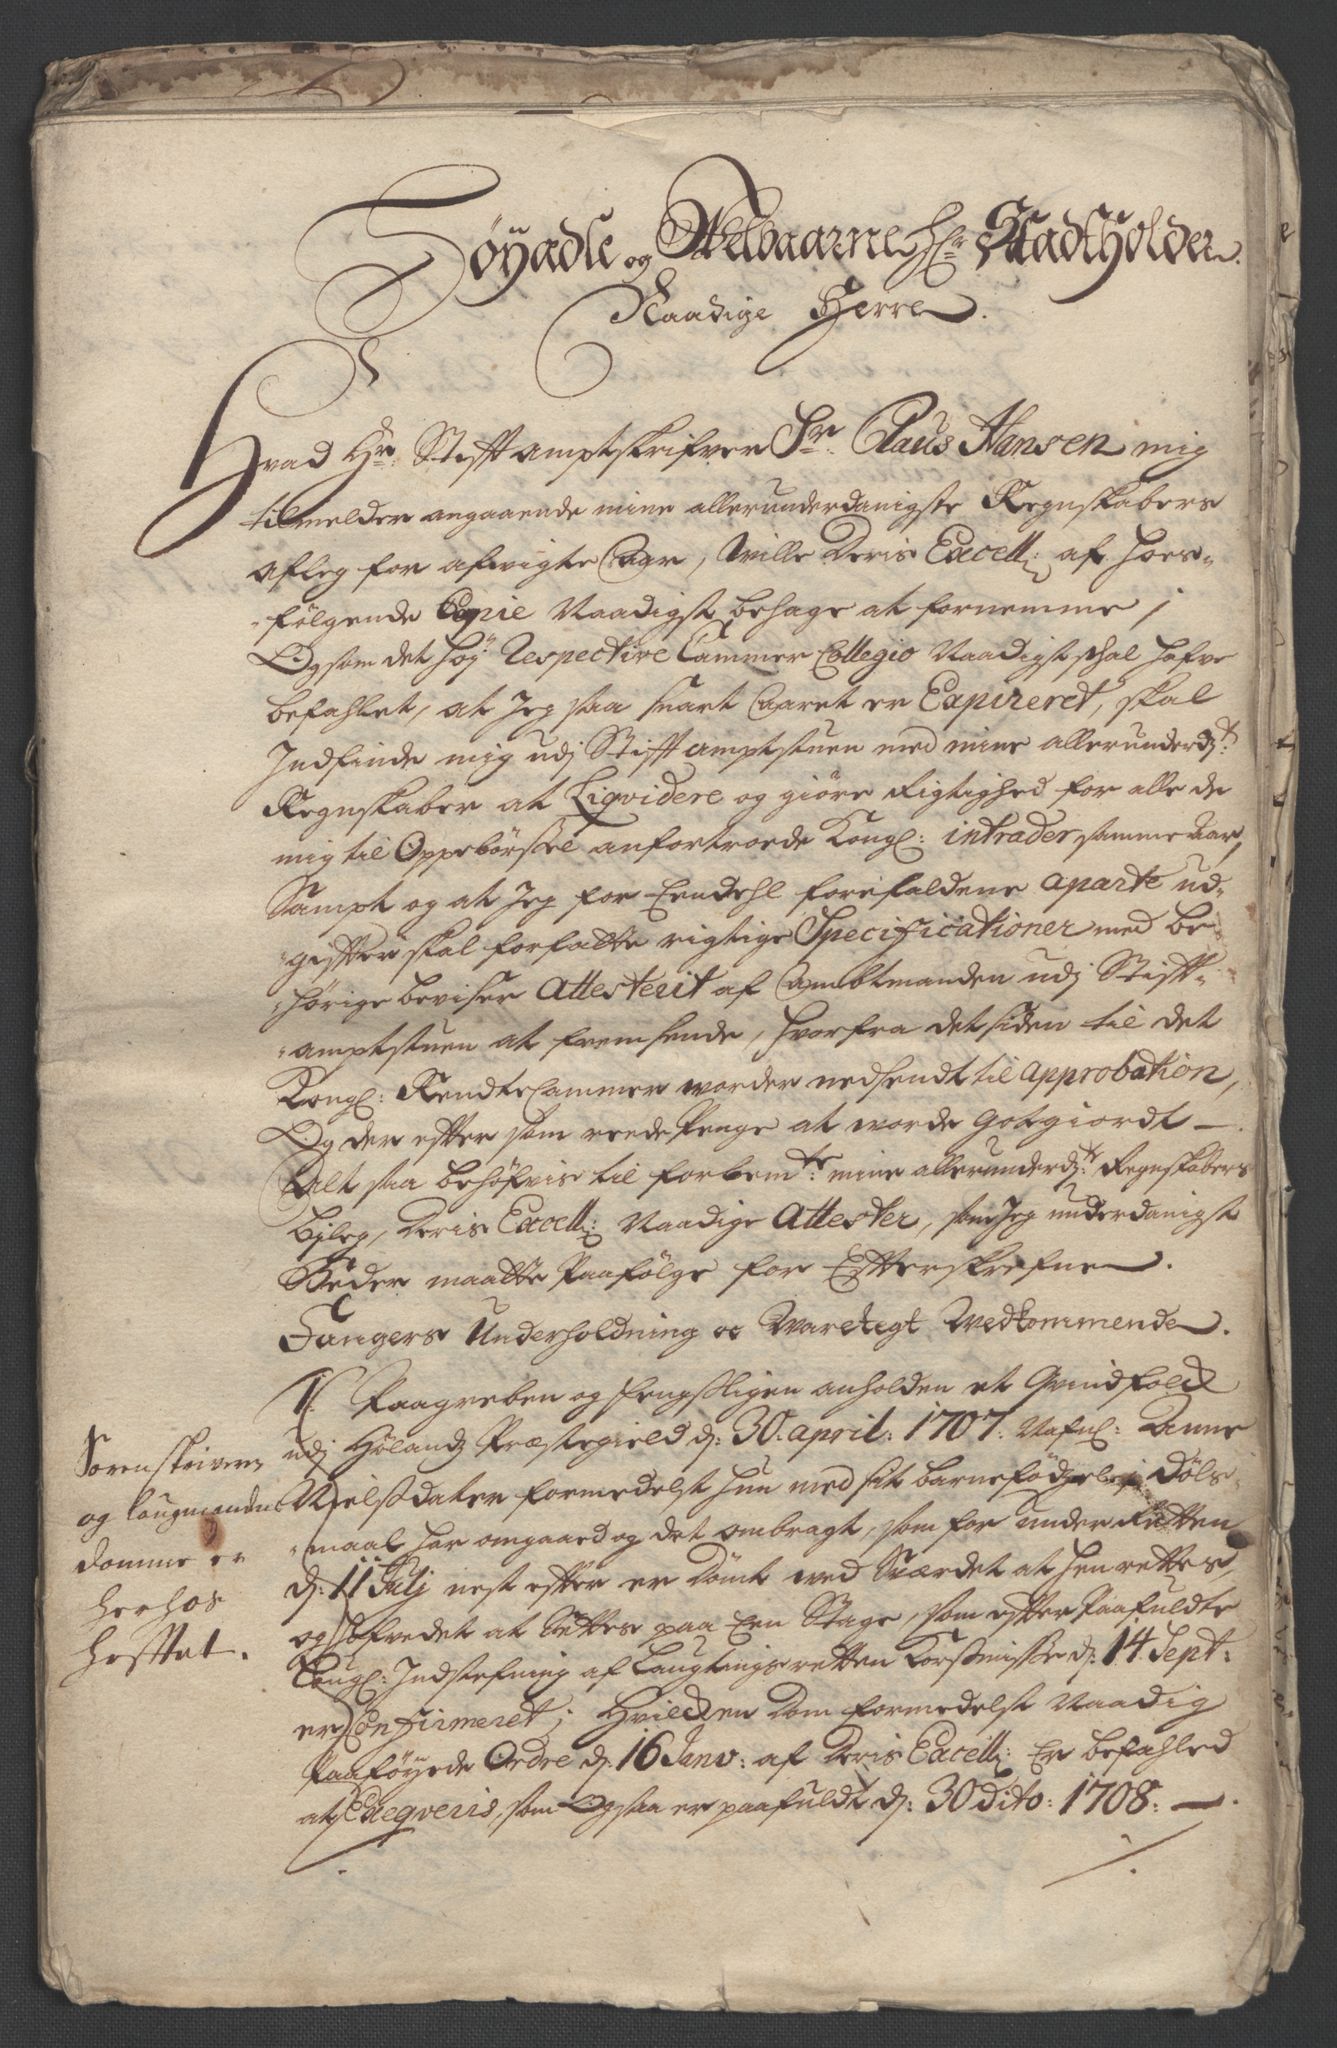 Höyædle og Welbaarne Hr Stadtholder.
Naadige Herre.
Hvad Hr. Stifftamptskrifver Sr. Claus Hansen mig
tilmelder angaaende mine allerunderdanigste Regnskabers
aflæg for afvigte Aar, Wille Deris Excell: af hoes-
-fölgende Copie Naadigst behage at fornemme;
Og som det höy Respective Cammer Collegio Naadigst schal hafve
befahlet, at Jeg saa snart Aaret er Expireret, skal
Indfinde mig udj Stifftamptstuen med mine allerunderdste
Regnskaber at Liqvidere og giöre Rigtighed for alle de
mig til Oppebörsel anfortroede Kongl: intrader samme Aar,
Sampt og at Jeg for Eendehl forefaldene aparte ud-
-giffter skal forfatte rigtige Specificationer med be-
-hörige beviser Attesterit af Ambtmanden udj Stifft-
-amptstuen at fremsende, hvorfra det siden til det
Kongl: RendteCammer worder nedsendt til Approbation,
Og der effter som reede Penge at worde Gotgiordt -.
Alt saa behöfvis til forbemte: mine allerunderdste Regnskabers
bjleg, Deris Excell: Naadige Attester, som Jeg underdanigst
Beder maatte Paafölge for Effterskrefne.
Fangers Underholdning oc Waretegt Wedkommende.
1. Paagreben og fengsligen anholden et Qvindfolck
udj Hölands Præstegield d: 30. april: 1707. Nafnl: Anne
Nielsdater formedelst hun med sit barnefödzel i Döls-
-maal har omgaaed og det ombragt, som for under Retten
d: 11 Julj nest effter er Dömt wed Sværdet at henrettes,
og hofvedet at settes paa Een Stage, som effter Paafuldte
Kongl: Indstefning af Laugtingsretten Korsmisse d: 14 Sept:
er Confirmeret; Hvilcken Dom formedelst Naadig
Paaföyede Ordre d: 16 Janv: af Deris Excell: Er befahled
at Exeqveris, som Ogsaa er paafuldt d: 30 dito: 1708. -.
Sorenskriverens
og laugmandens
domme er
herhos
hefftet.